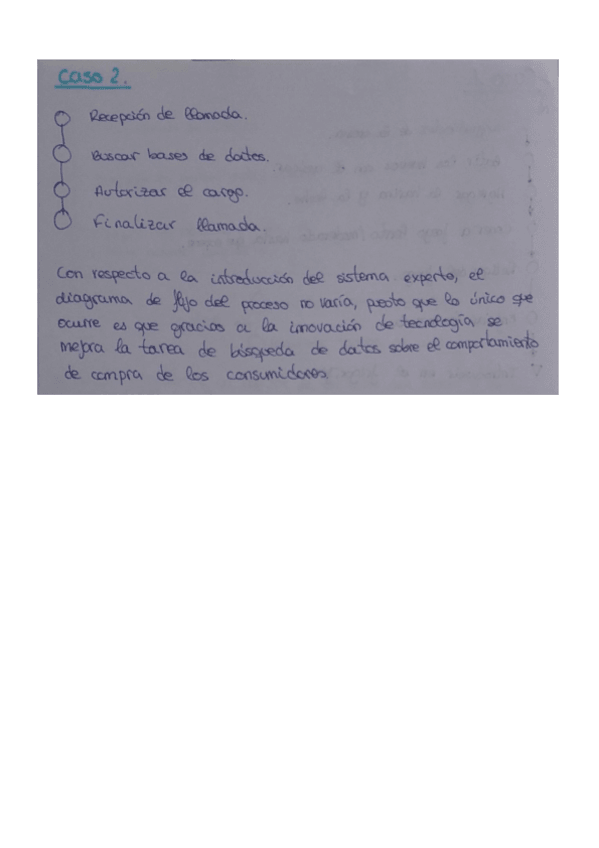 Caso 2.
Recepción de llamada.
Buscar bases de datos.
Autorizar el cargo.
Finalizar llamada.
Con respecto a la introducción del sistema experto, el
diagrama de flujo del proceso no varía, puesto que lo único que
ocurre es que gracias a la innovación de tecnología se
mejora la tarea de búsqueda de datos sobre el comportamiento
de compra de los consumidores.